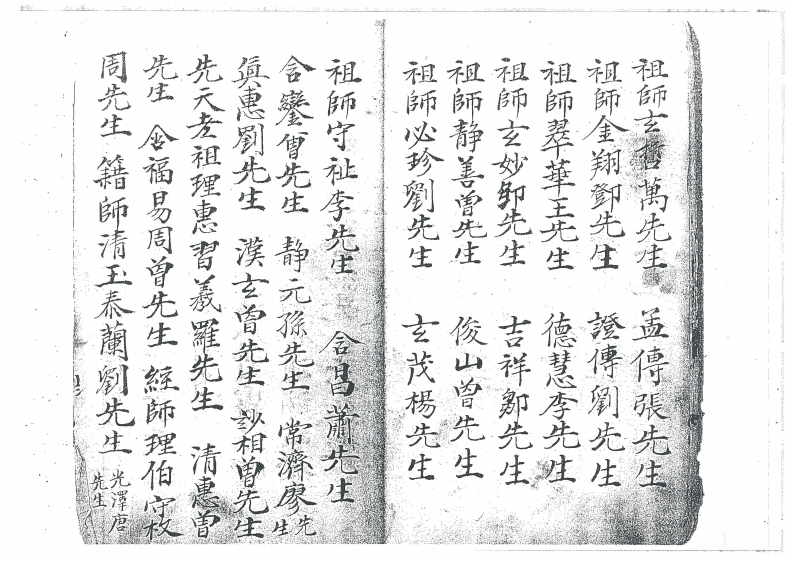 祖師玄哲萬先生 孟傳張先生
祖師金翔鄧先生 證傳劉先生
祖師翠華王先生 德慧李先生
祖師玄妙鄒先生 吉祥鄒先生
祖師靜善曾先生 俊山曾先生
祖師必珍劉先生 玄茂楊先生
祖師守祉李先生 合昌蕭先生
合鑾曾先生 靜元孫先生 常濟廖先生
眞惠劉先生 漢玄曾先生 妙相曾先生
先天老祖理惠習羲羅先生 清惠曾
先生 合福易周曾先生 經師理伯守枚
周先生 籍師清玉泰蘭劉先生 光澤唐先生